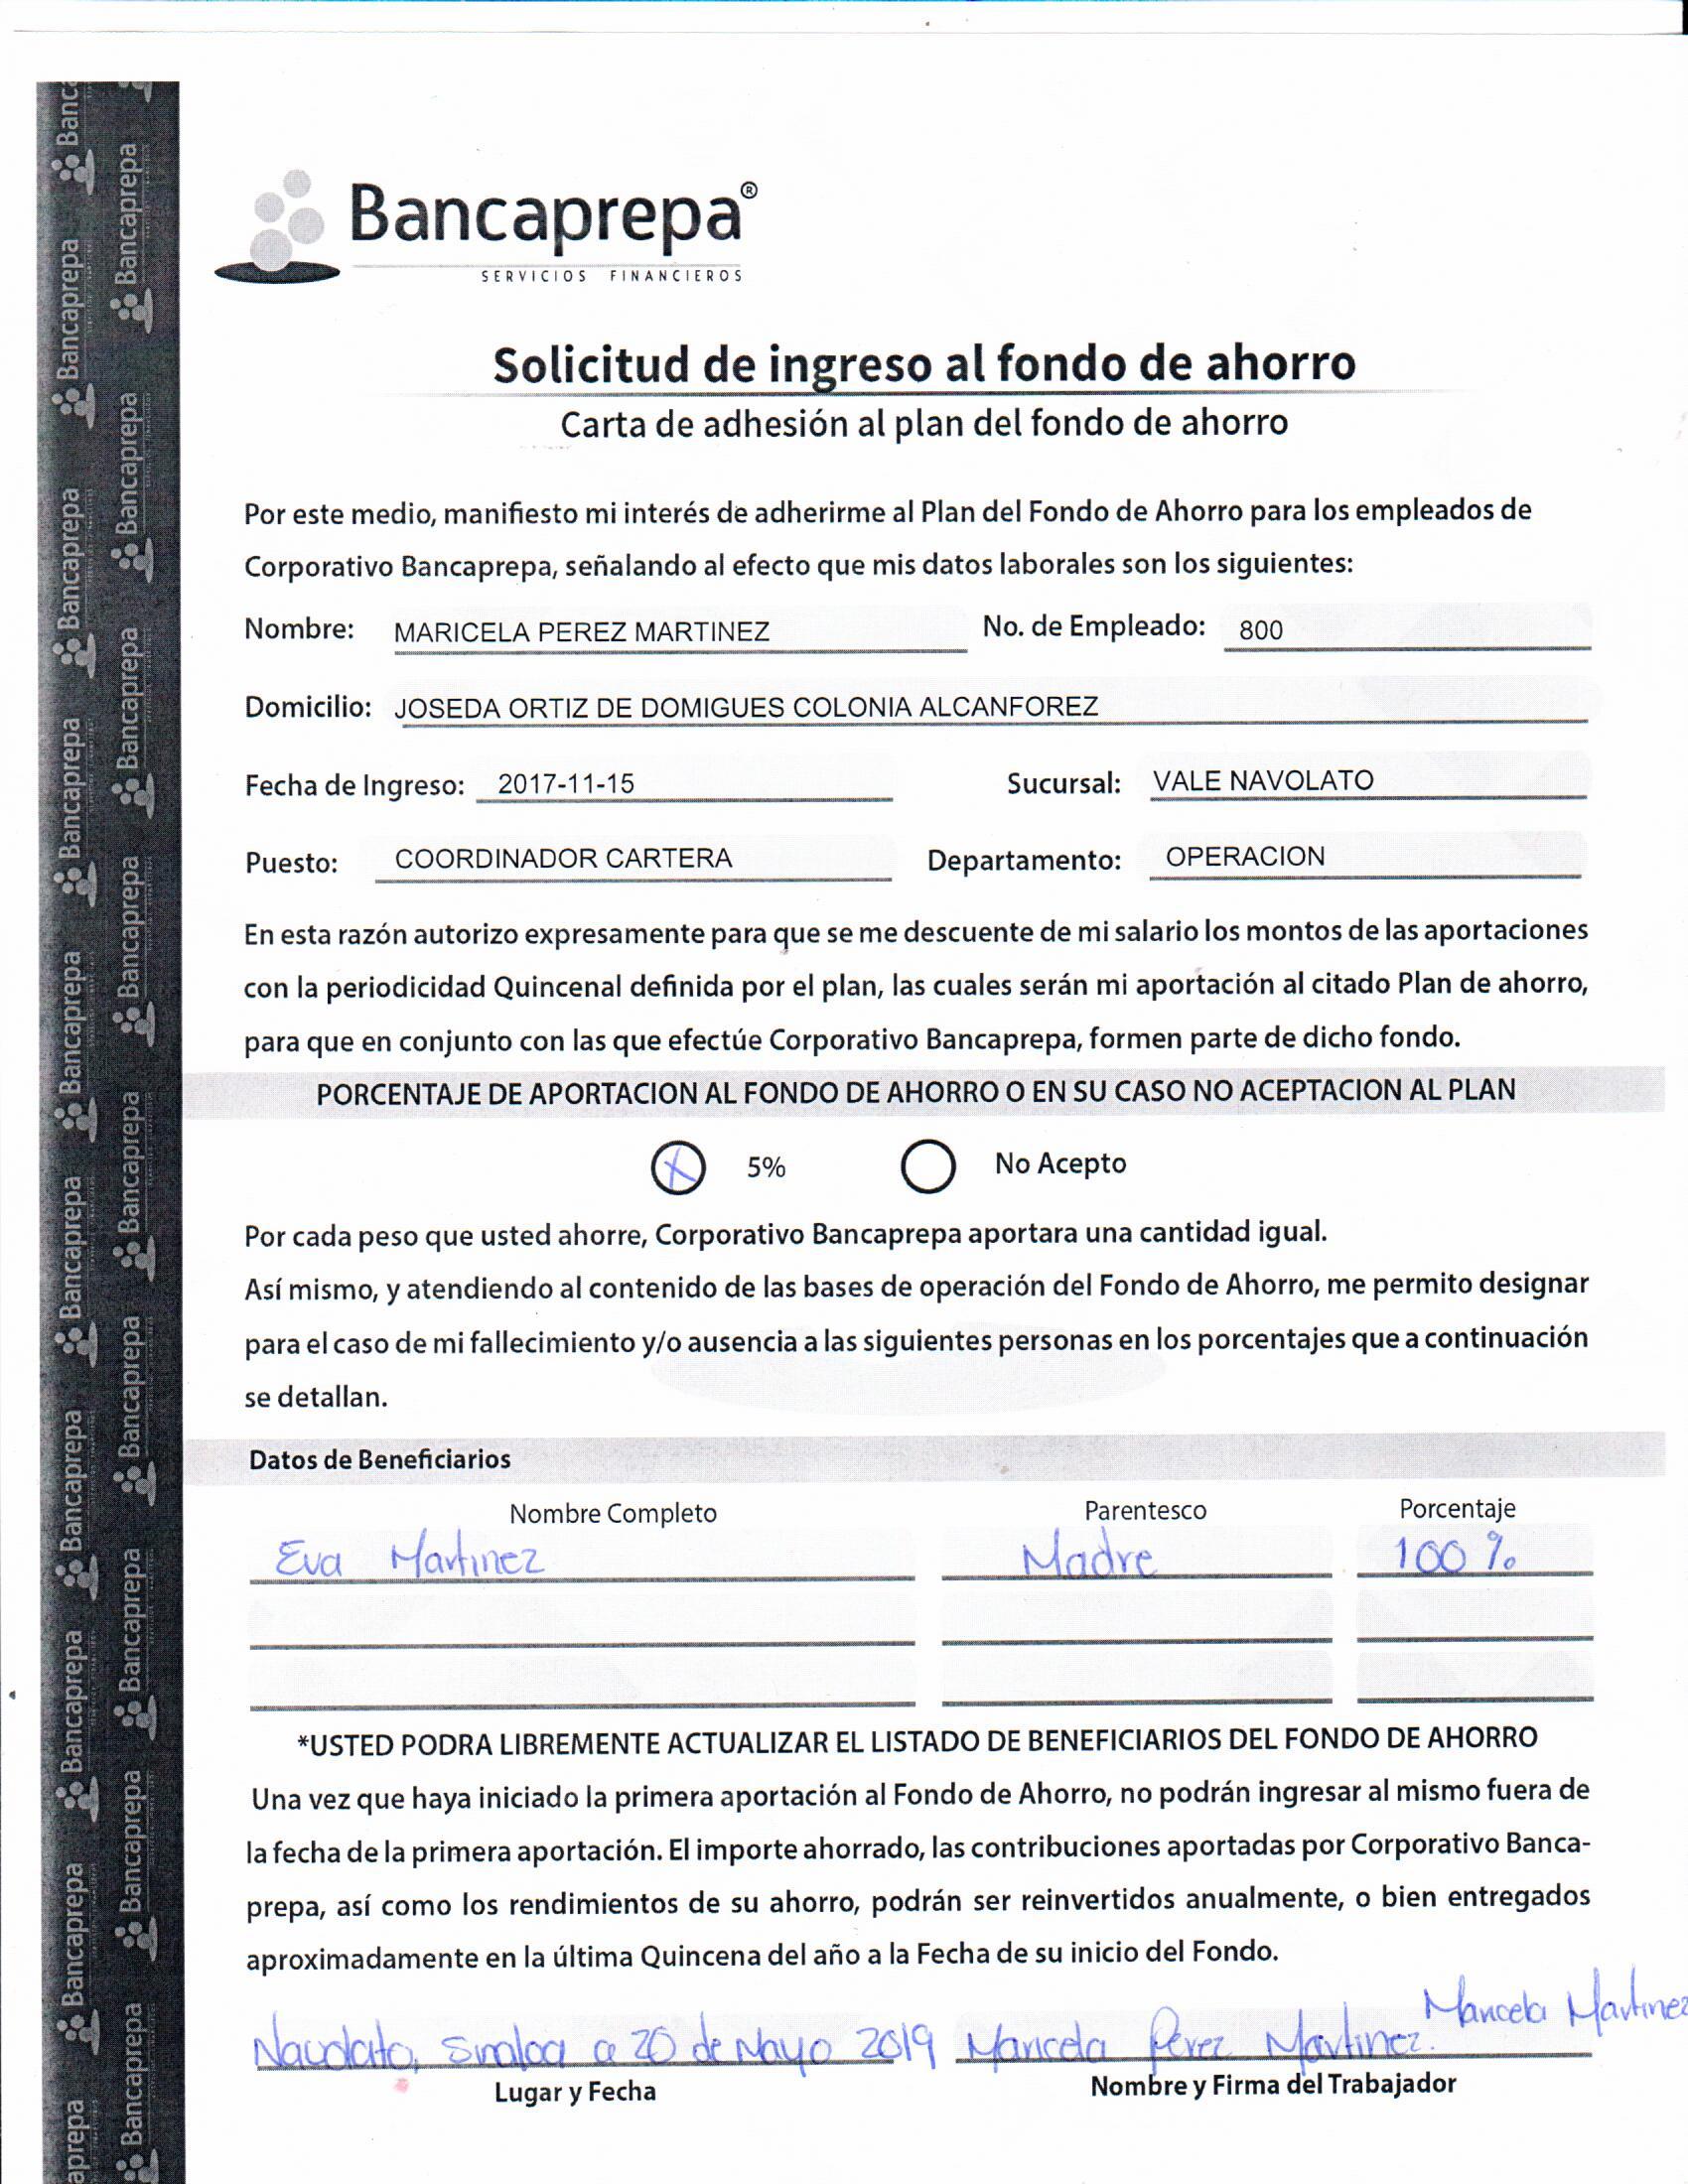 Bancaprepa®
SERVICIOS FINANCIEROS
Solicitud de ingreso al fondo de ahorro
Carta de adhesión al plan del fondo de ahorro
Por este medio, manifiesto mi interés de adherirme al Plan del Fondo de Ahorro para los empleados de
Corporativo Bancaprepa, señalando al efecto que mis datos laborales son los siguientes:
Nombre: MARICELA PEREZ MARTINEZ No. de Empleado: 800
Domicilio: JOSEDA ORTIZ DE DOMIGUES COLONIA ALCANFOREZ
Fecha de Ingreso: 2017-11-15 Sucursal: VALE NAVOLATO
Puesto: COORDINADOR CARTERA Departamento: OPERACION
En esta razón autorizo expresamente para que se me descuente de mi salario los montos de las aportaciones
con la periodicidad Quincenal definida por el plan, las cuales serán mi aportación al citado Plan de ahorro,
para que en conjunto con las que efectúe Corporativo Bancaprepa, formen parte de dicho fondo.
PORCENTAJE DE APORTACION AL FONDO DE AHORRO O EN SU CASO NO ACEPTACION AL PLAN
X 5% No Acepto
Por cada peso que usted ahorre, Corporativo Bancaprepa aportara una cantidad igual.
Así mismo, y atendiendo al contenido de las bases de operación del Fondo de Ahorro, me permito designar
para el caso de mi fallecimiento y/o ausencia a las siguientes personas en los porcentajes que a continuación
se detallan.
Datos de Beneficiarios
Nombre Completo Parentesco Porcentaje
Eva Martinez Madre 100 %
*USTED PODRA LIBREMENTE ACTUALIZAR EL LISTADO DE BENEFICIARIOS DEL FONDO DE AHORRO
Una vez que haya iniciado la primera aportación al Fondo de Ahorro, no podrán ingresar al mismo fuera de
la fecha de la primera aportación. El importe ahorrado, las contribuciones aportadas por Corporativo Banca-
prepa, así como los rendimientos de su ahorro, podrán ser reinvertidos anualmente, o bien entregados
aproximadamente en la última Quincena del año a la Fecha de su inicio del Fondo.
Maricela Martinez
Navolato, Sinaloa a 20 de Mayo 2019 Maricela Perez Martinez.
Lugar y Fecha Nombre y Firma del Trabajador